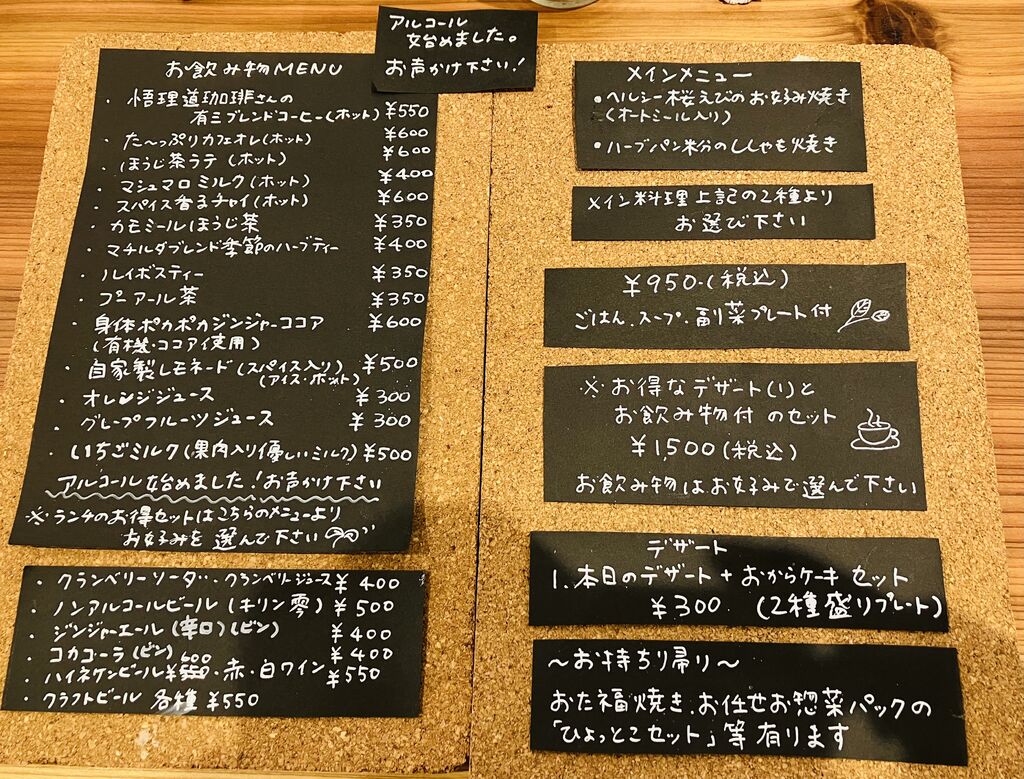 アルコール
始めました。
お声かけ下さい!
お飲み物MENU
・悟理道珈琲さんの
有三ブレンドコーヒー(ホット) ¥550
・た〜っぷりカフェオレ(ホット) ¥600
・ほうじ茶ラテ(ホット) ¥600
・マシュマロミルク(ホット) ¥400
・スパイス香るチャイ(ホット) ¥600
・カモミールほうじ茶 ¥350
・マチルダブレンド季節のハーブティー ¥400
・ルイボスティー ¥350
・プーアール茶 ¥350
・身体ポカポカジンジャーココア ¥600
(有機・ココア使用)
・自家製レモネード(スパイス入り) ¥500
(アイス・ホット)
・オレンジジュース ¥300
・グレープフルーツジュース ¥300
・いちごミルク(果肉入り優しいミルク) ¥500
アルコール始めました!お声かけ下さい
※ランチのお得セットはこちらのメニューより
お好みを選んで下さい
・クランベリーソーダ・クランベリージュース ¥400
・ノンアルコールビール(キリン零) ¥500
・ジンジャーエール(辛口)(ビン) ¥400
・コカコーラ(ビン) ¥400
・ハイネケンビール ¥550 600・赤・白ワイン ¥550
・クラフトビール 各種 ¥550
メインメニュー
・ヘルシー桜えびのお好み焼き
(オートミール入り)
・ハーブパン粉のししゃも焼き
メイン料理上記の2種より
お選び下さい
¥950.(税込)
ごはん、スープ、副菜プレート付
※お得なデザート(1)と
お飲み物付のセット
¥1,500(税込)
お飲み物はお好みで選んで下さい
デザート
1.本日のデザート+おからケーキセット
¥300 (2種盛りプレート)
〜お持ち帰り〜
おた福焼き、お任せお惣菜パックの
「ひょっとこセット」等有ります